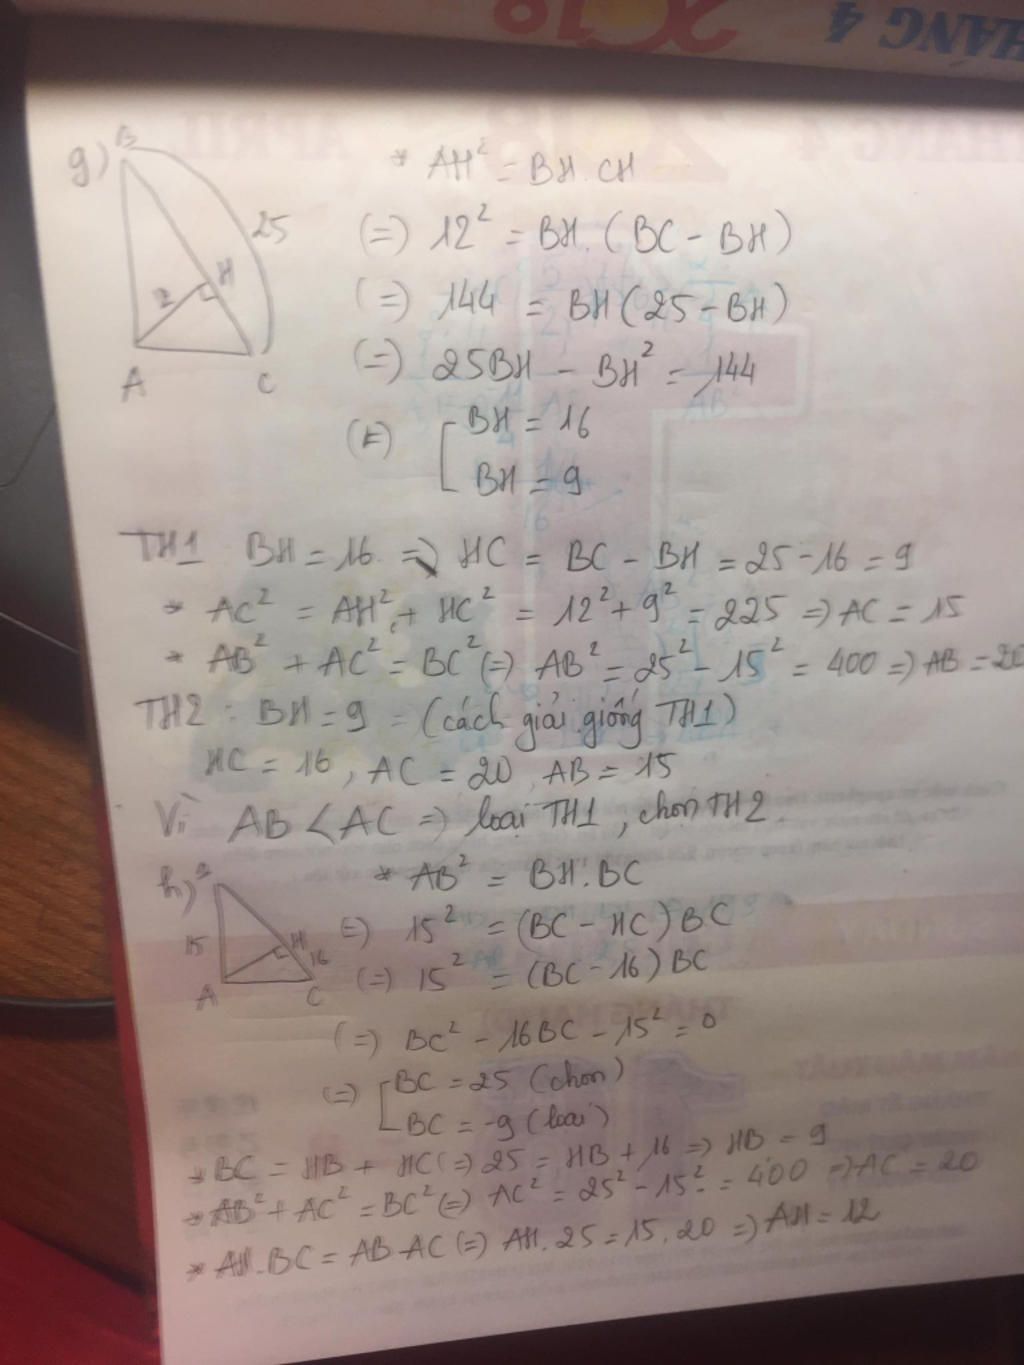 HÁNG 4
2018
g)
B
25
H
2
A
C
* AH² = BH.CH
(=) 12² = BH.(BC - BH)
(=) 144 = BH(25 - BH)
(=) 25BH - BH² = 144
(=) [ BH = 16
BH = 9
TH1 BH = 16 => HC = BC - BH = 25 - 16 = 9
* AC² = AH² + HC² = 12² + 9² = 225 => AC = 15
* AB² + AC² = BC² (=) AB² = 25² - 15² = 400 => AB = 20
TH2 : BH = 9 = (cách giải giống TH1)
HC = 16, AC = 20, AB = 15
Vì AB < AC => loại TH1, chọn TH2.
h)
15
H
16
A
C
* AB² = BH.BC
(=) 15² = (BC - HC)BC
(=) 15² = (BC - 16)BC
(=) BC² - 16BC - 15² = 0
(=) [ BC = 25 (chọn)
BC = -9 (loại)
* BC = HB + HC (=) 25 = HB + 16 => HB = 9
* AB² + AC² = BC² (=) AC² = 25² - 15² = 400 => AC = 20
* AH.BC = AB.AC (=) AH.25 = 15.20 => AH = 12